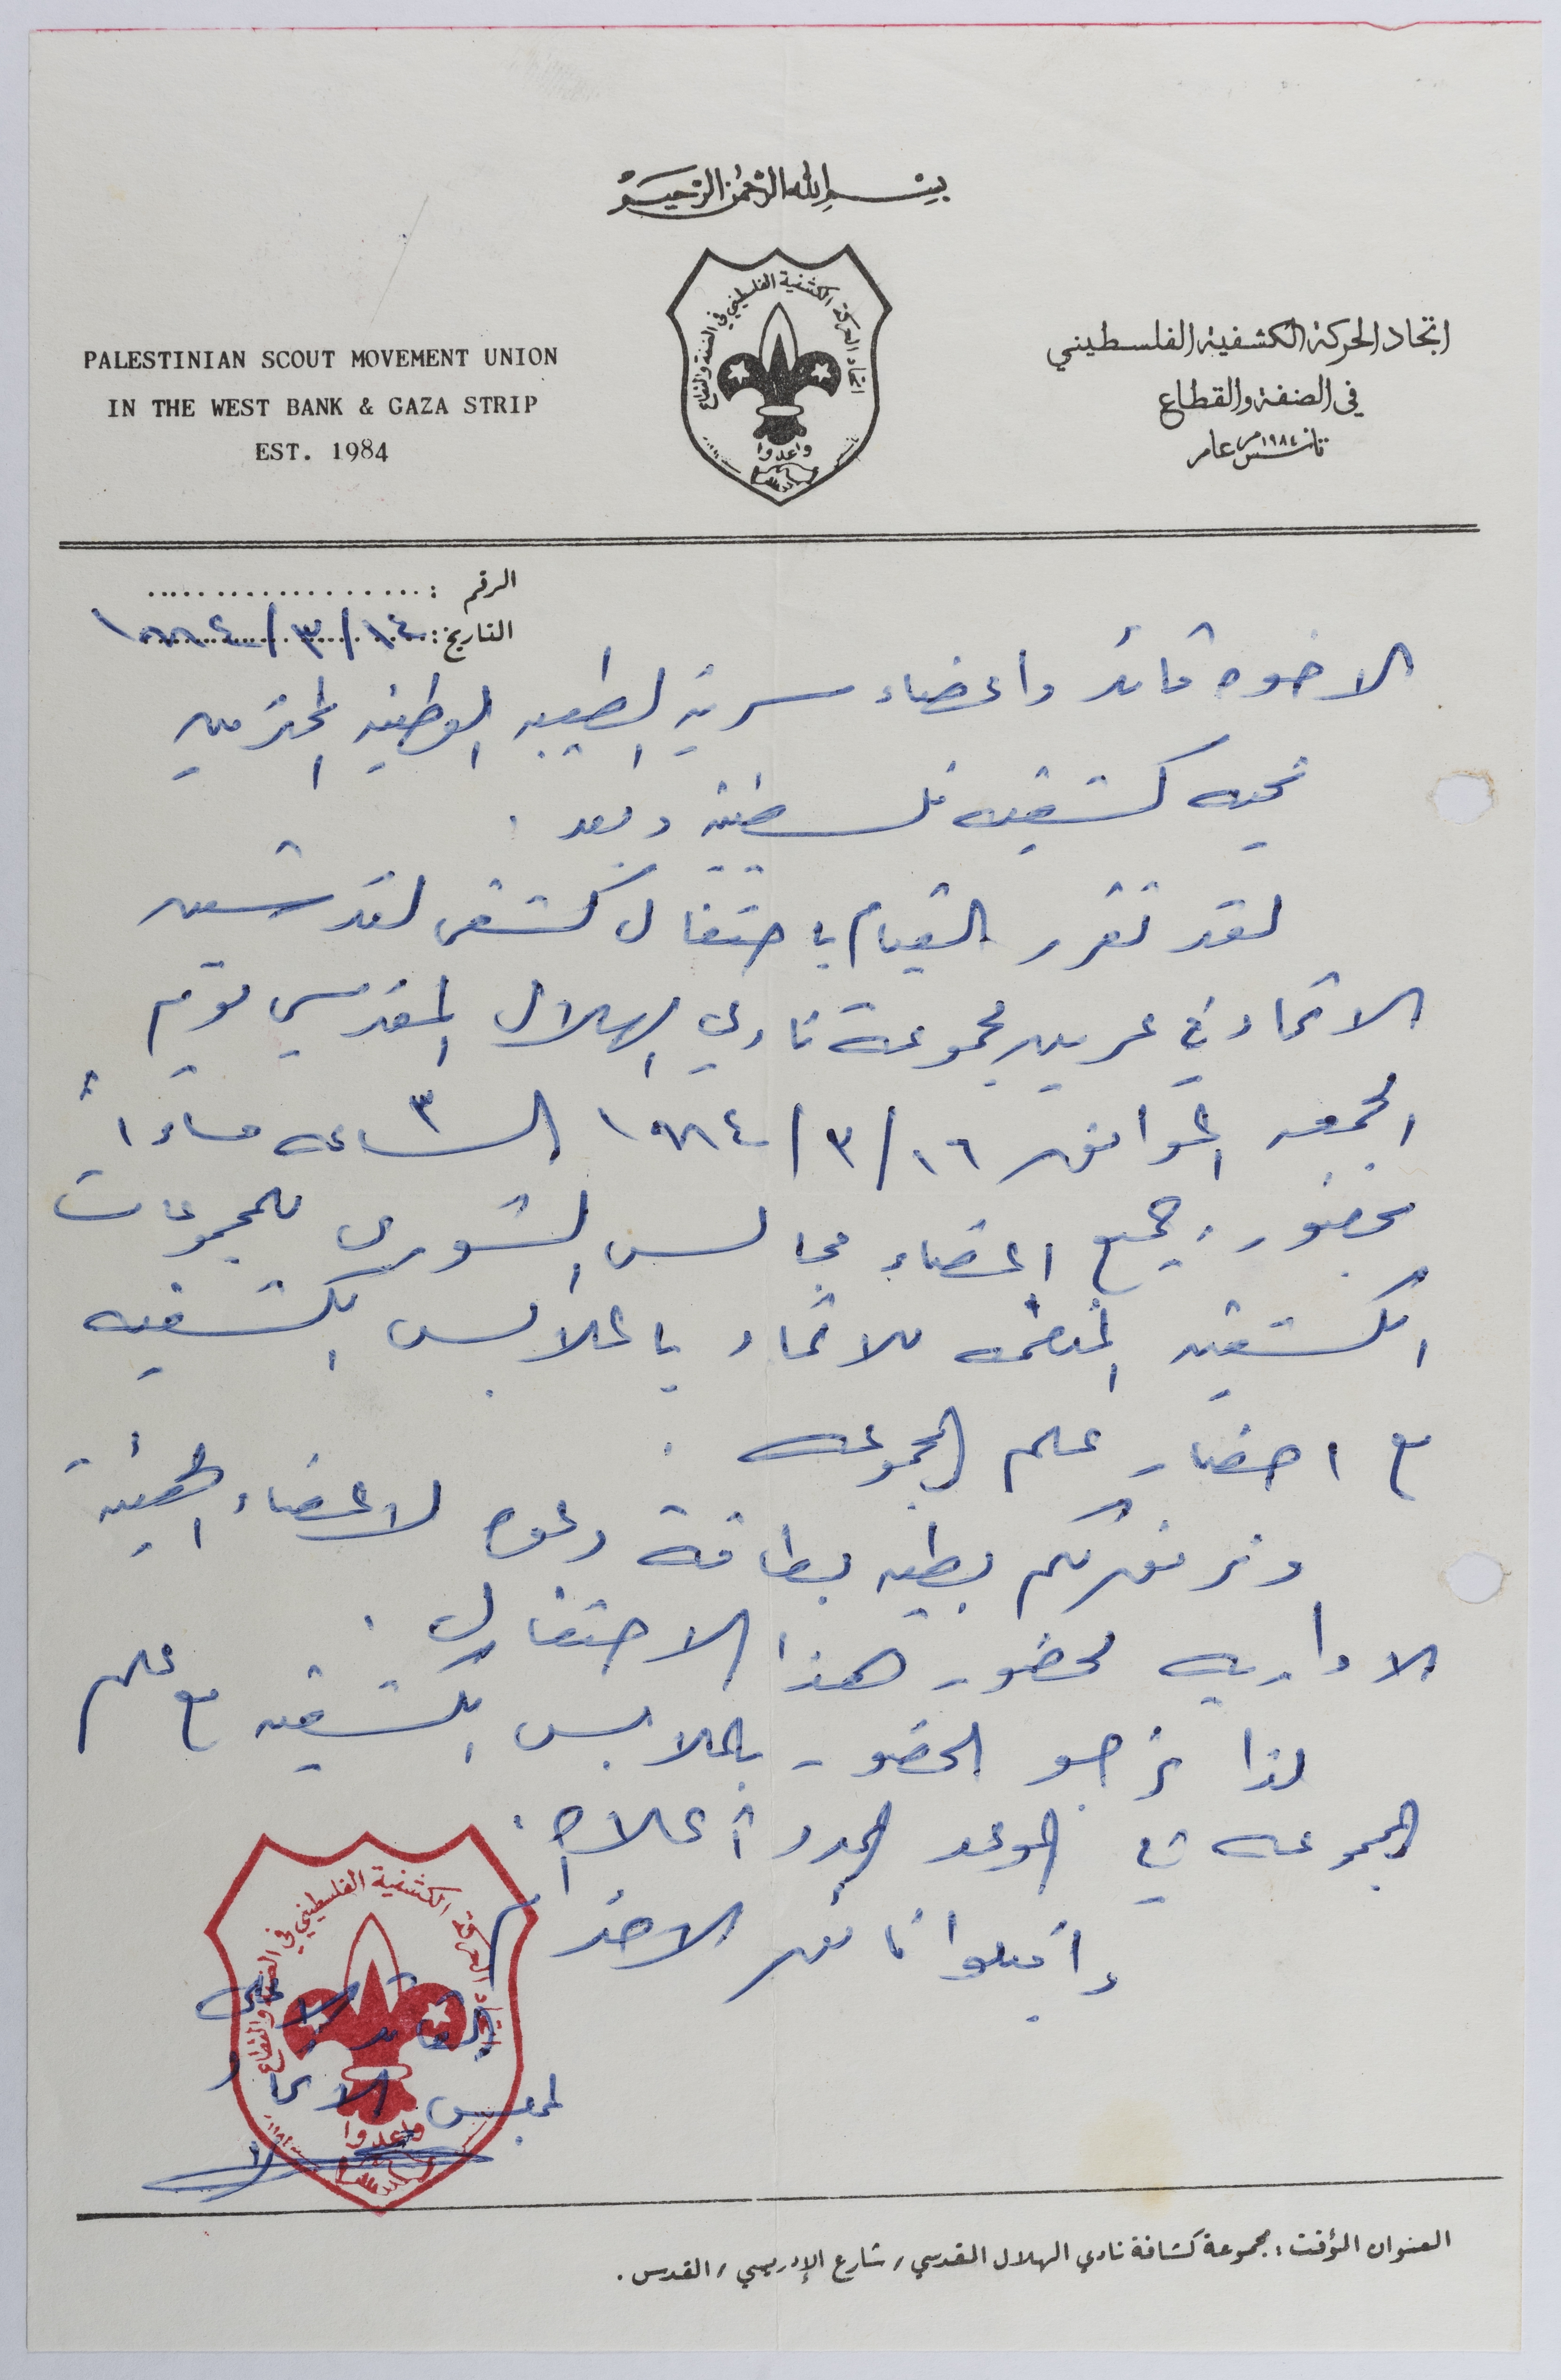 بسم الله الرحمن الرحيم
PALESTINIAN SCOUT MOVEMENT UNION
IN THE WEST BANK & GAZA STRIP
EST. 1984
اتحاد الحركة الكشفية الفلسطيني في الضفة والقطاع
واعدوا
اتحاد الحركة الكشفية الفلسطيني
في الضفة والقطاع
تأسس عام ١٩٨٤م
الرقم : ....................
التاريخ : ١٤/٣/١٩٨٤
الاخوه قائد واعضاء سرية الطيبه الوطنيه المحترمين
تحيه كشفيه فلسطينيه وبعد :
لقد تقرر القيام باحتفال كشفي لتدشين
الاتحاد في عرين مجموعة نادي الهلال المقدسي يوم
الجمعه الموافق ١٦/٣/١٩٨٤ الساعه ٣ مساءاً
بحضور جميع اعضاء مجالس الشورى للمجموعات
الكشفيه المنضمه للاتحاد بالملابس الكشفيه
مع احضار علم المجموعه .
ونرفق لكم بطيه بطاقة دعوه لاعضاء الهيئة
الاداريه لحضور هذا الاحتفال .
لذا نرجو الحضور بالملابس الكشفيه مع علم
المجموعه في الموعد المحدد أعلاه .
واقبلوا فائق الاحترام
القائد الاعلى
لمجلس الاتحاد
اتحاد الحركة الكشفية الفلسطيني في الضفة والقطاع
واعدوا
العنوان المؤقت : مجموعة كشافة نادي الهلال المقدسي / شارع الإدريسي / القدس .